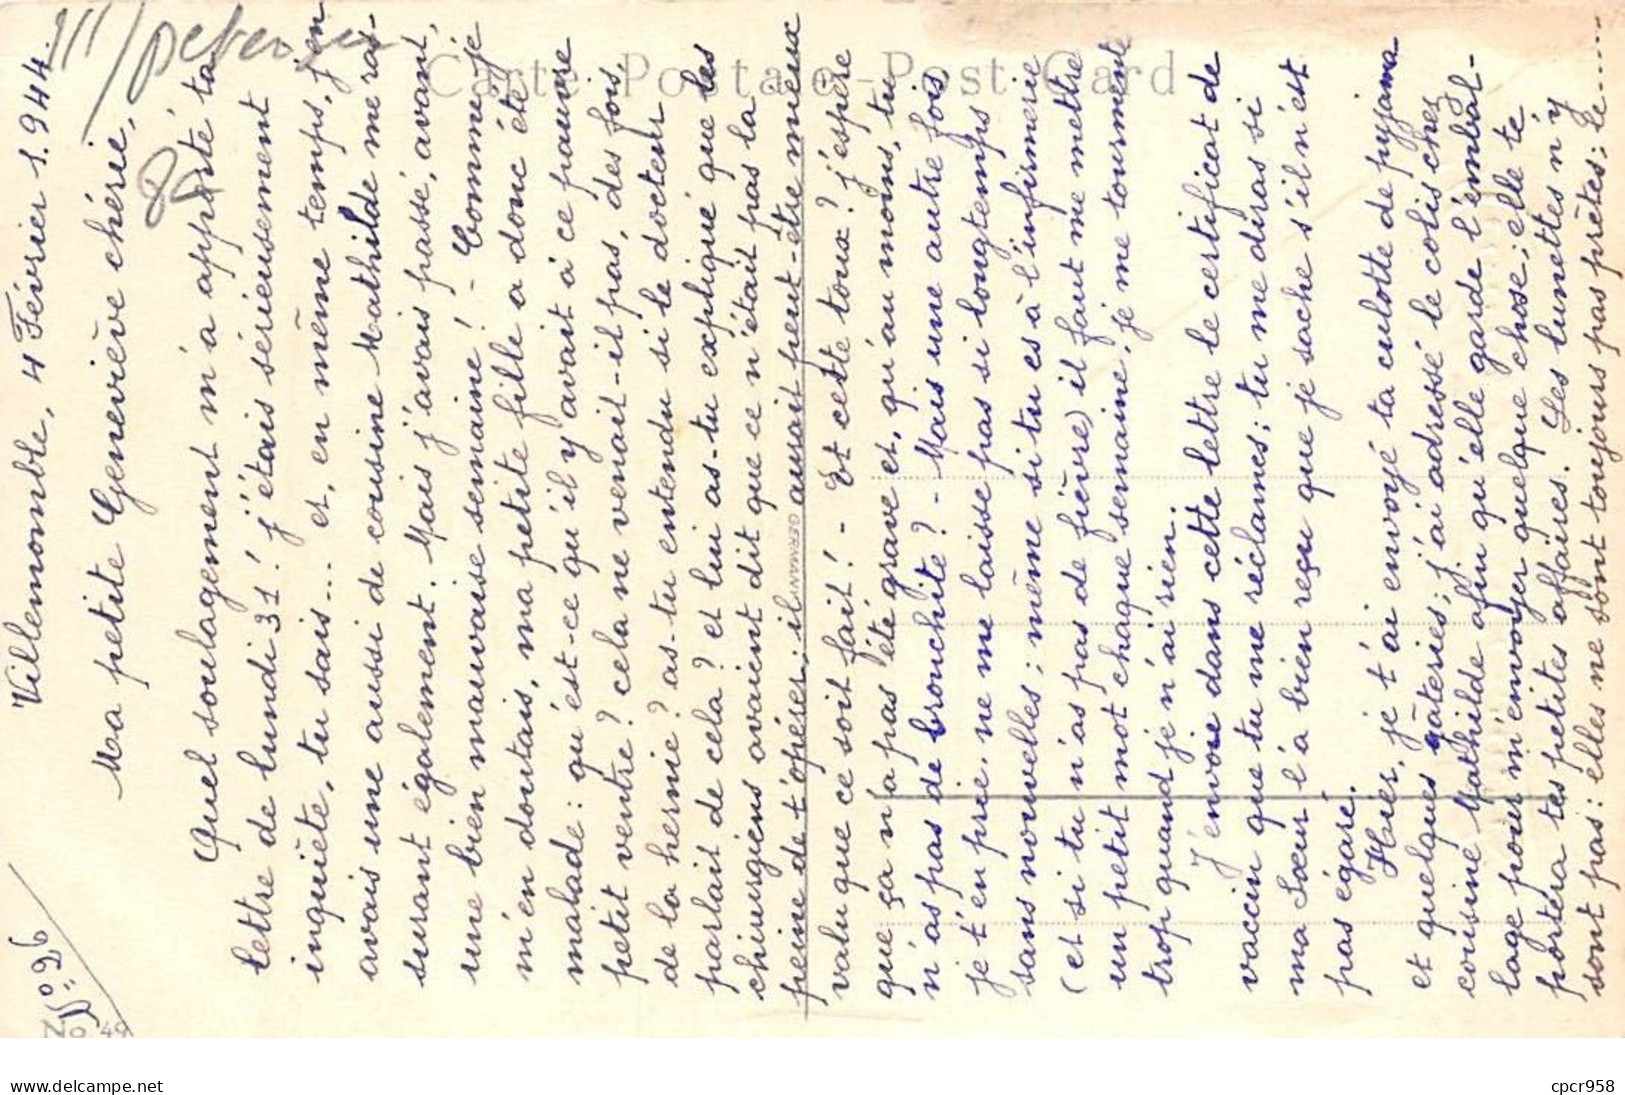 Villemomble, 4 Février 1.944.
Ma petite Geneviève chérie,
Quel soulagement m'a apporté ta
lettre de lundi 31! j'étais sérieusement
inquiète, tu sais... et, en même temps, j'en
avais une aussi de cousine Mathilde me ras-
surant également. Mais j'avais passé, avant,
une bien mauvaise semaine! - Comme je
m'en doutais, ma petite fille a donc été
malade: qu'est-ce qu'il y avait à ce pauvre
petit ventre? cela ne venait-il pas, des fois,
de la hernie? as-tu entendu si le docteur
parlait de cela? et lui as-tu expliqué que les
chirurgiens avaient dit que ce n'était pas la
peine de t'opérer; il aurait peut-être mieux
valu que ce soit fait! - Et cette toux? j'espère
que ça n'a pas été grave et, qu'au moins, tu
n'as pas de bronchite? - Mais une autre fois
je t'en prie, ne me laisse pas si longtemps
sans nouvelles; même si tu es à l'infirmerie
(et si tu n'as pas de fièvre) il faut me mettre
un petit mot chaque semaine, je me tourmente
trop quand je n'ai rien.
J'envoie dans cette lettre le certificat de
vaccin que tu me réclames; tu me diras si
ma Sœur l'a bien reçu que je sache s'il n'est
pas égaré.
Hier, je t'ai envoyé ta culotte de pyjama
et quelques gâteries; j'ai adressé le colis chez
cousine Mathilde afin qu'elle garde l'embal-
lage pour m'envoyer quelque chose; elle te
portera tes petites affaires. Les lunettes n'y
sont pas: elles ne sont toujours pas prêtes; le....
No: 26
No. 49
Carte Postale - Post Card
GERMANY
cpcr958
www.delcampe.net